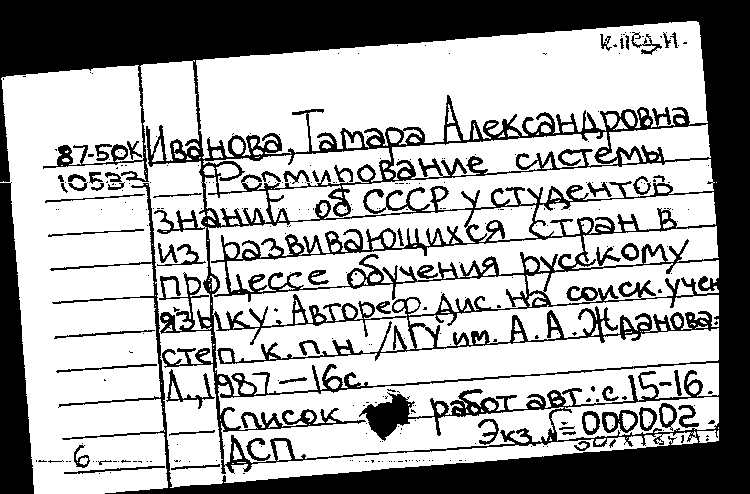 К.пед.н.
87-50К Иванова, Тамара Александровна
10533 Формирование системы
знаний об СССР у студентов
из развивающихся стран в
процессе обучения русскому
языку: Автореф. дис. на соиск. учен
степ. к.п.н. /ЛГУ им. А.А.Жданова.-
Л., 1987.—16с.
Список работ авт.: с.15-16.
ДСП. Экз №=000002.
6.